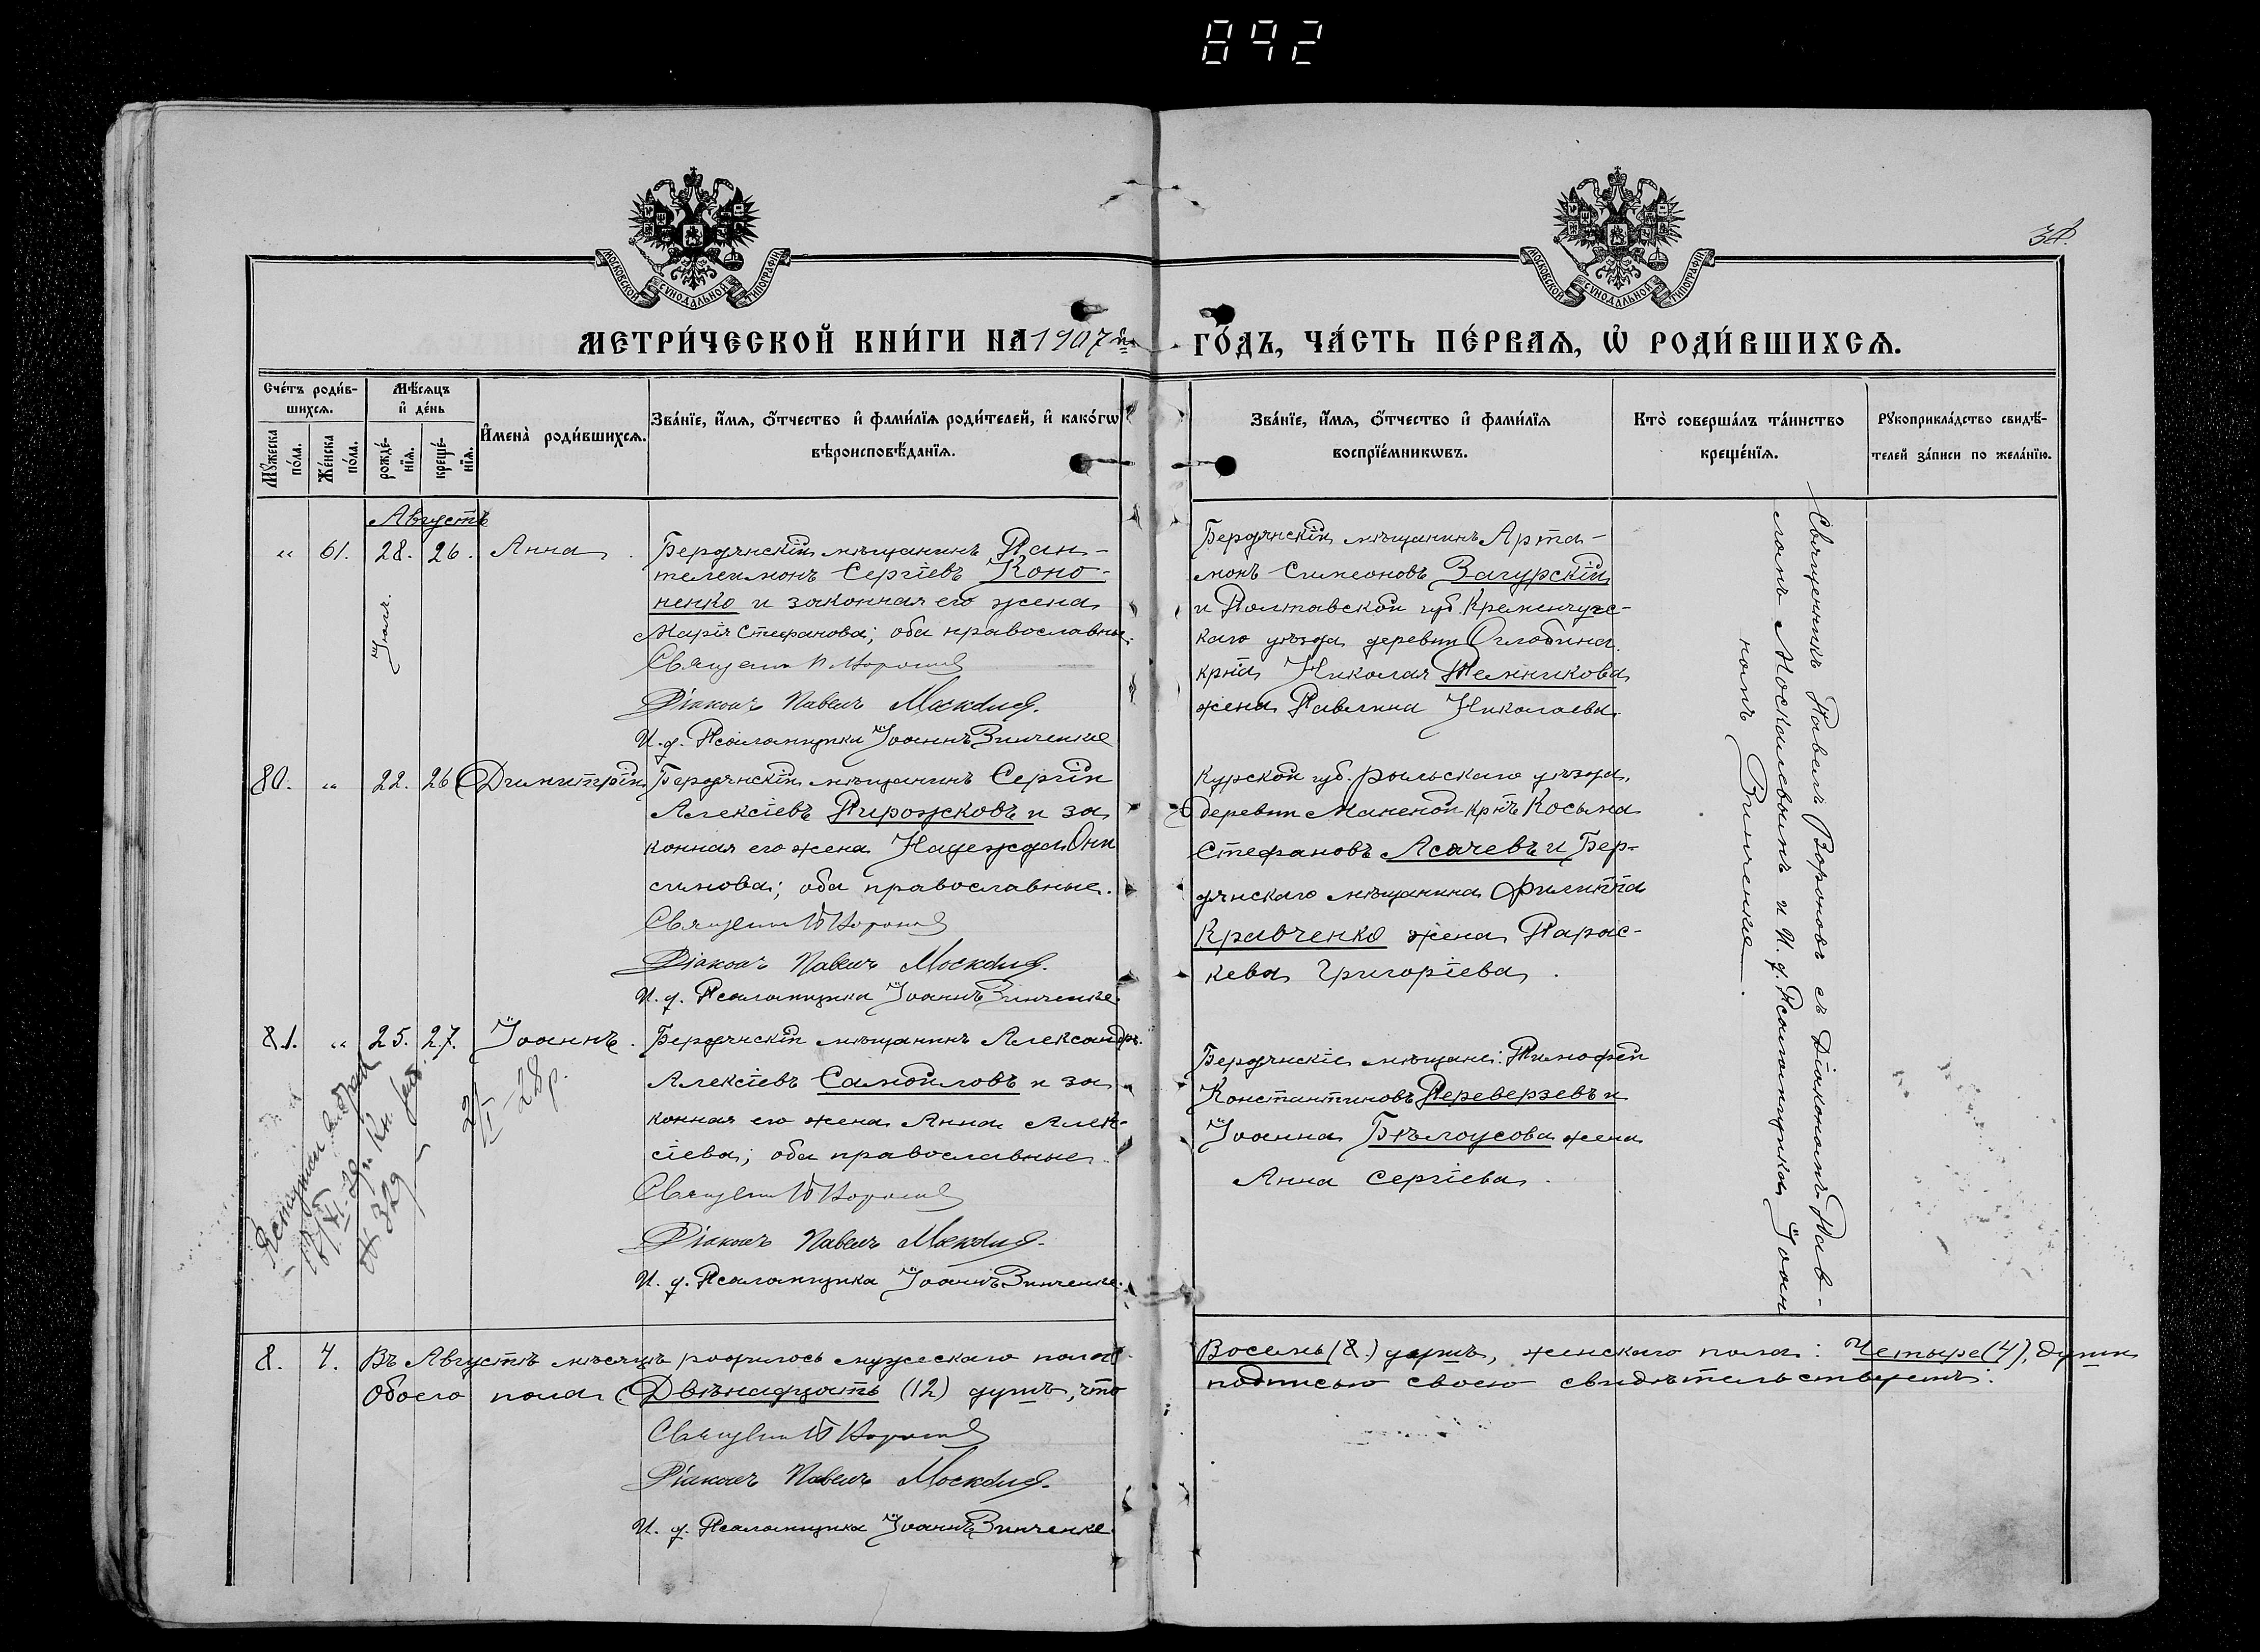 892
34.
МОСКОВСКОЙ СѴНОДАЛЬНОЙ ТИПОГРАФІИ
МОСКОВСКОЙ СѴНОДАЛЬНОЙ ТИПОГРАФІИ
МЕТРИ́ЧЕСКОЙ КНИ́ГИ НА 1907й
ГО́ДЪ, ЧА́СТЬ ПЕ́РВАѦ, Ѡ҆ РОДИ́ВШИХСѦ.
Сче́тъ роди́в-
шихсѧ.
Мꙋ́жеска
по́ла.
Же́нска
по́ла.
Мѣ́сѧцъ
и҆ де́нь
рожде́-
нїѧ.
креще́-
нїѧ.
И҆мена̀ роди́вшихсѧ.
Зва́нїе, и҆́мѧ, ѻ҆́тчество и҆ фами́лїѧ роди́телей, и҆ како́гѡ
вѣроисповѣ́данїѧ.
Зва́нїе, и҆́мѧ, ѻ҆́тчество и҆ фами́лїѧ
воспрїе́мникѡвъ.
Кто̀ соверша́лъ та́инство
креще́нїѧ.
Рꙋкоприкла́дство свидѣ́-
телей за́писи по жела́нїю.
Августъ
„ 61. 28. 26. Анна.
Іюля.
Бердянскій мѣщанинъ Пан-
телеимонъ Сергіевъ Коно-
ненко и законная его жена
Марія Стефанова; оба православные.
Священн. П. Вороновъ
Діаконъ Павелъ Москалев.
И. д. Псаломщика Іоаннъ Зинченко
Бердянскій мѣщанинъ Арта-
монъ Симеоновъ Загурскій
и Полтавской губ. Кременчугс-
каго уѣзда деревни Оглобина
крна Николая Темникова
жена Павлина Николаева.
Священникъ Павелъ Вороновъ съ Діакономъ Пав-
ломъ Москалевымъ и И. д. Псаломщика Іоан
номъ Зинченко.
80. „ 22. 26 Димитрій
Бердянскій мѣщанинъ Сергій
Алексіевъ Пирожковъ и за
конная его жена Надежда Они
симова; оба православные.
Священн. П Вороновъ
Діаконъ Павелъ Москалев.
И. д. Псаломщика Іоаннъ Зинченко.
Курской губ. Рыльскаго уѣзда,
деревни Маненой крнъ Косьма
Стефановъ Асачевъ и Бер-
дянскаго мѣщанина Филиппа
Кравченко жена Парас-
кева Григоріева.
81. „ 25. 27. Іоаннъ.
Бердянскій мѣщанинъ Александръ
Алексіевъ Самойловъ и за
конная его жена Анна Алек-
сіева; оба православные.
Священн. П Вороновъ
Діаконъ Павелъ Москалев.
И. д. Псаломщика Іоаннъ Зинченко.
Бердянскіе мѣщане: Тимофей
Константиновъ Переверзевъ и
Іоанна Бѣлоусова жена
Анна Сергіева.
№ 329
8. 4. Въ Августѣ мѣсяцѣ родилось мужескаго пола
Восемь (8.) душъ, женскаго пола: Четыре (4), души
Обоего пола Двѣнадцать (12) душъ, что
подписью своею свидѣтельствуемъ.
Священн. П Вороновъ
Діаконъ Павелъ Москалев.
И. д. Псаломщика Іоаннъ Зинченко.